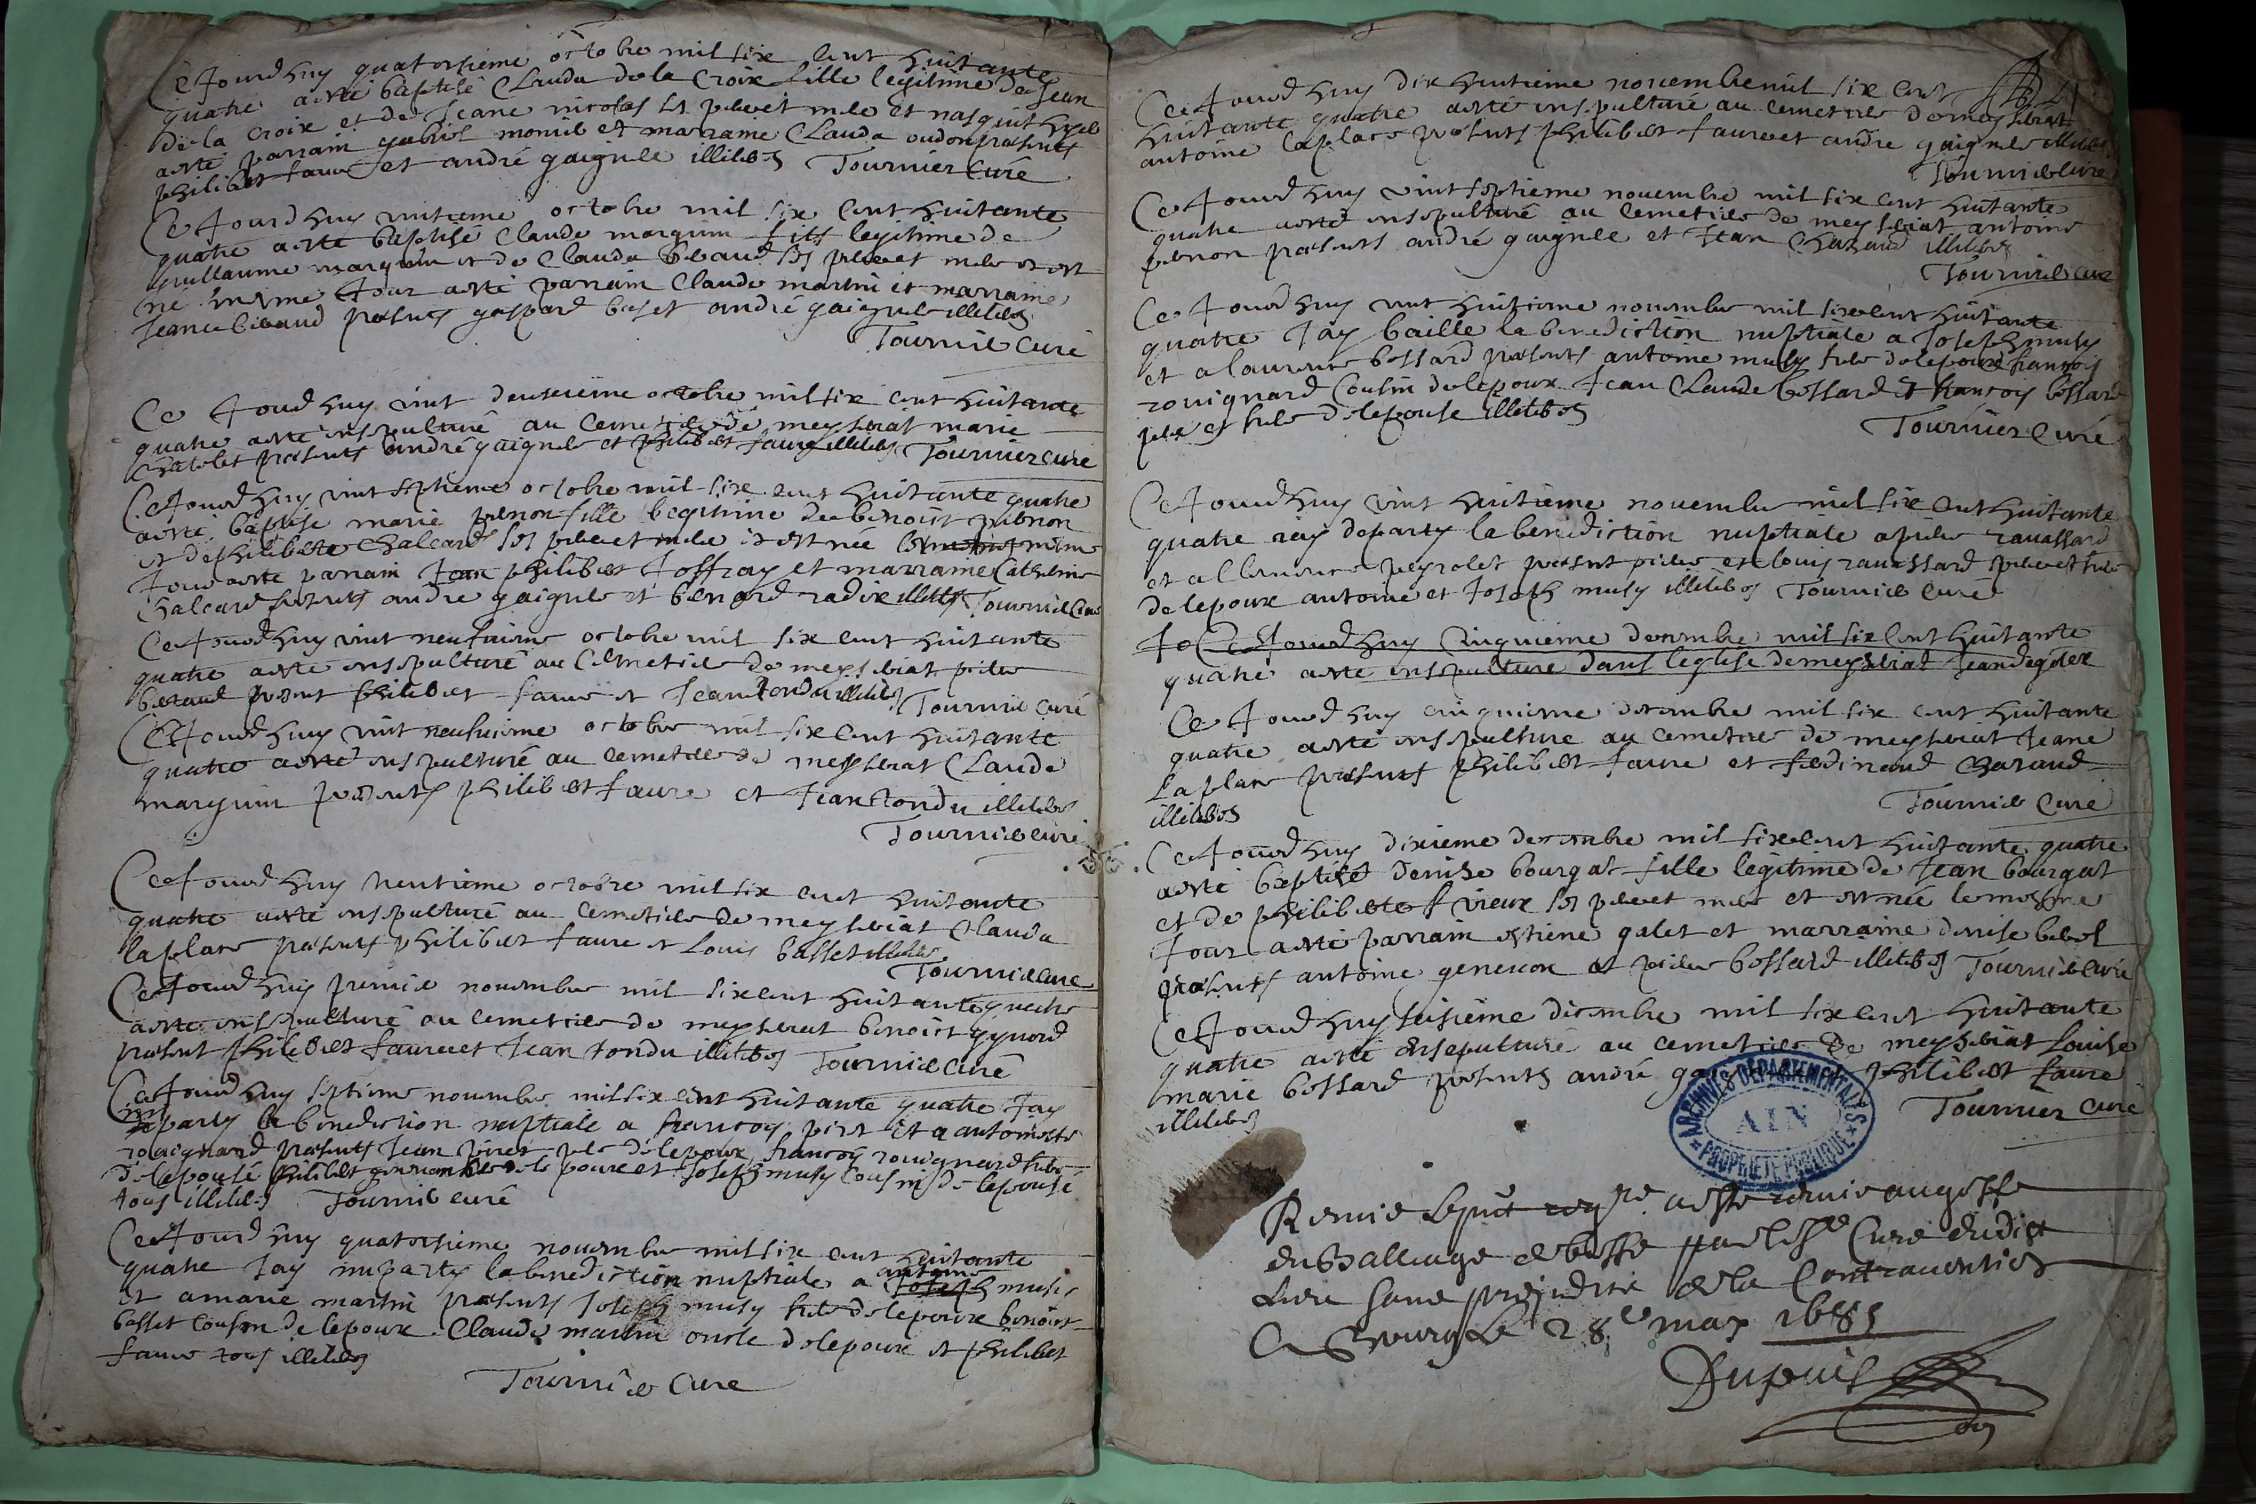 Ce Jourd huy quatorsieme octobre mil six cent huitante
quatre a esté baptisé Clauda de la Croix fille legitime de Jean
de la croix et de Jeane nicolas ses pere et mere et nasquit hyer
a esté parrain gabriel monier et marraine Clauda oudon presents
philibert faure et andré gaignere illiteres Tournier Curé
Ce Jourd huy vintieme octobre mil six cent huitante
quatre a esté baptisé Claude marguin fils legitime de
guillaume marguin et de Clauda beraud ses pere et mere et est
né mesme Jour a esté parrain Claude martin et marraine
Jeane beraud presents gaspard et andré gaignere illiteres
Tournier Curé
Ce Jourd huy vint deuxieme octobre mil six cent huitante
quatre a esté ensepulturé au cemetiere de meyseriat marie
Chatelet presents andré gaignere et philibert faure illiteres Tournier curé
Ce Jourd huy vint septieme octobre mil six cent huitante quatre
a esté baptisé marie pernon fille legitime de benoist pernon
et de philiberte Chalcard ses pere et mere et est née le mesme
Jour a esté parrain Jean philibert Joffray et marraine Catherine
Chalcard presents andre gaignere et benard radix illiteres Tournier Curé
Ce Jourd huy vint neufvieme octobre mil six cent huitante
quatre a esté ensepulturé au Cemetiere de meyseriat pierre
beraud present philibert faure et Jean tondu illiteres Tournier curé
Ce Jourd huy vint neufvieme octobre mil six cent huitante
quatre a esté ensepulturé au cemetiere de meyseriat Claude
marguin presents philibert faure et Jean tondu illiteres
Tournier curé
Ce Jourd huy trentieme octobre mil six cent huitante
quatre a esté ensepulturé au cemetiere de meyseriat Clauda
laplace presents philibert faure et Louis basset illiteres
Tournier curé
Ce Jourd huy premier novembre mil six cent huitante quatre
a esté ensepulturé au cemetiere de meyseriat benoist
present philibert faure et Jean tondu illiteres Tournier Curé
Ce Jourd huy septieme novembre mil six cent huitante quatre Jay
imparty la benediction nuptiale a francoy piret et a antoinette
rouignard presents Jean piret pere de lepoux francoy rouignard frere
de lepouse philibert de lepoux et Joseph musy cousin de lepouse
tous illiteres Tournier curé
Ce Jourd huy quatorsieme novembre mil six cent huitante
quatre Jay imparty la benediction nuptiale a antoine Joseph musy
et a marie martin presents Joseph musy frere de lepoux benoist
basset Cousin de lepoux Claude martin oncle de lepoux et philibert
faure tous illiteres
Tournier Curé
Ce Jourd huy dix huitieme novembre mil six cent
huitante quatre a esté ensepulturé au cemetiere de meyseriat
antoine laplace presents philibert faure et andre gaignere illiteres
Tournier curé
Ce Jourd huy vint septieme novembre mil six cent huitante
quatre a esté ensepulturé au cemetiere de meyseriat antoine
pernon presents andré gaignere et Jean Charaud illiteres
Tournier curé
Ce Jourd huy vint huitieme novembre mil six cent huitante
quatre Jay baille la benediction nuptiale a Joseph musy
et a laurence bossard presents antoine musy frere de lepoux francois
rouignard Cousin de lepoux Jean Claude bossard et francois bossard
pere et frere de lepouse illiteres
Tournier Curé
Ce Jourd huy vint huitieme novembre mil six cent huitante
quatre iay departy la benediction nuptiale a pierre ravassard
et a peyrolet present pierre et louis ravassard pere et frere
de lepoux antoine et Joseph musy illiteres Tournier Curé
Jo Ce Jourd huy Cinquieme decembre mil six cent huitante
quatre a esté ensepulture dans leglise de meyseriat
Ce Jourd huy cinquieme decembre mil six cent huitante
quatre a esté ensepulture au cemetiere de meyseriat Jeane
laplace presents philibert faure et ferdinand Charaud
illiteres
Tournier Curé
Ce Jourd huy dixieme decembre mil six cent huitante quatre
a esté baptisé denise bourgat fille legitime de Jean bourgat
et de philiberte vieux ses pere et mere et est née le mesme
Jour a esté parrain estiene galet et marraine denise
presents antoine et pierre bossard illiteres Tournier Curé
Ce Jourd huy seisieme decembre mil six cent huitante
quatre a esté ensepulturé au cemetiere de meyseriat Louise
marie bossard presents andré philibert faure
illiteres
Tournier curé
ARCHIVES DEPARTEMENTALES
AIN
PROPRIETE PUBLIQUE
Remis le a esté remis au greffe
du Balliage de bresse par le Sr Curé dudict
Lieu sans prejudice de la Contravention
A Bourg Le 28e may 1685
Dupuis